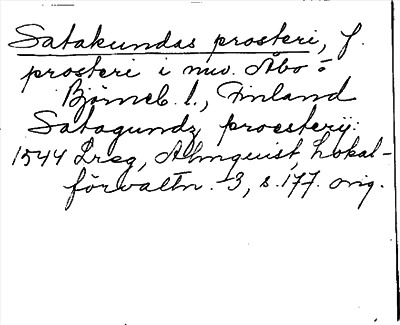 Satakundas prosteri, f.
prosteri i nuv. Åbo o.
Björneb. l., Finland
Satagundz proesterij:
1544 Lreg, Almquist, Lokal-
förvaltn. 3, s. 177. orig.